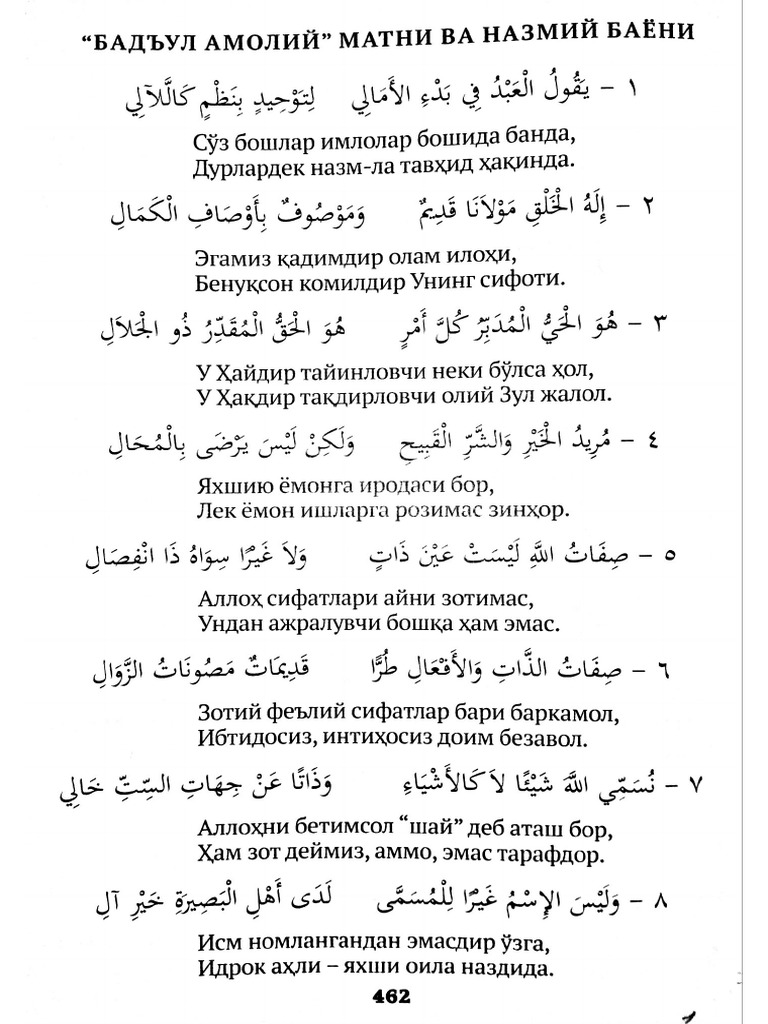 “БАДЪУЛ АМОЛИЙ” МАТНИ ВА НАЗМИЙ БАЁНИ
١ – يَقُولُ الْعَبْدُ فِي بَدْءِ الأَمَالِي لِتَوْحِيدٍ بِنَظْمٍ كَاللَّآلِي
Сўз бошлар имлолар бошида банда,
Дурлардек назм-ла тавҳид ҳақинда.
٢ – إِلَهُ الْخَلْقِ مَوْلَانَا قَدِيمٌ وَمَوْصُوفٌ بِأَوْصَافِ الْكَمَالِ
Эгамиз қадимдир олам илоҳи,
Бенуқсон комилдир Унинг сифоти.
٣ – هُوَ الْحَيُّ الْمُدَبِّرُ كُلَّ أَمْرٍ هُوَ الْحَقُّ الْمُقَدِّرُ ذُو الْجَلَالِ
У Ҳайдир тайинловчи неки бўлса ҳол,
У Ҳақдир тақдирловчи олий Зул жалол.
٤ – مُرِيدُ الْخَيْرِ وَالشَّرِّ الْقَبِيحِ وَلَكِنْ لَيْسَ يَرْضَى بِالْمُحَالِ
Яхшию ёмонга иродаси бор,
Лек ёмон ишларга розимас зинҳор.
٥ – صِفَاتُ اللَّهِ لَيْسَتْ عَيْنَ ذَاتٍ وَلاَ غَيْرًا سِوَاهُ ذَا انْفِصَالِ
Аллоҳ сифатлари айни зотимас,
Ундан ажралувчи бошқа ҳам эмас.
٦ – صِفَاتُ الذَّاتِ وَالأَفْعَالِ طُرًّا قَدِيمَاتٌ مَصُونَاتُ الزَّوَالِ
Зотий феълий сифатлар бари баркамол,
Ибтидосиз, интиҳосиз доим безавол.
٧ – نُسَمِّي اللَّهَ شَيْئًا لاَ كَالأَشْيَاءِ وَذَاتًا عَنْ جِهَاتِ السِّتِّ خَالِي
Аллоҳни бетимсол “шай” деб аташ бор,
Ҳам зот деймиз, аммо, эмас тарафдор.
٨ – وَلَيْسَ الإِسْمُ غَيْرًا لِلْمُسَمَّى لَدَى أَهْلِ الْبَصِيرَةِ خَيْرِ آلِ
Исм номлангандан эмасдир ўзга,
Идрок аҳли – яхши оила наздида.
462